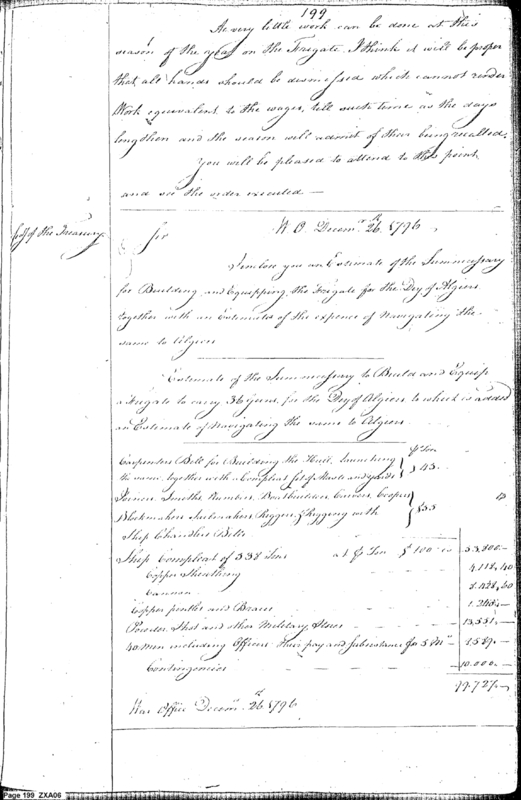 199
As very little work can be done at this
season of the year on the Frigate, I think it will be proper
that all hands should be dismissed which cannot render
Work equivalent to the wages, till such time as the days
lengthen and the season will admit of their being recalled.
You will be pleased to attend to this point
and see the order executed —
Secy of the Treasury
Sir W O Decemr 26, 1796.
I enclose you an Estimate of the Sum necessary
for Building and Equipping the Frigate for the Dey of Algiers
together with an Estimate of the expence of Navigating the
same to Algiers
Estimate of the Sum necessary to Build and Equip
a Frigate to carry 36 guns, for the Dey of Algiers to which is added
an Estimate of Navigating the same to Algiers.
Carpenters Bill for Building the Hull, launching
the same, together with a Compleat set of Masts and yards } 45.
Joiners Smiths Plumbers, Boatbuilders Carvers, Coopers
Blockmakers Sailmakers Riggers & Rigging with } $55
Ship Chandlers Bills
Ship Compleat of 338 Tons at $ 100 33.800.–
Copper Sheathing 4.118,40
Cannon 8.428,60
Copper and Braces
Powder Shot and other Military Stores
40 men including Officers their pay and Subsistance for
Contingencies 10.000.–
99.727.–
War Office Decemr 26, 1796
Page 199 ZXA06